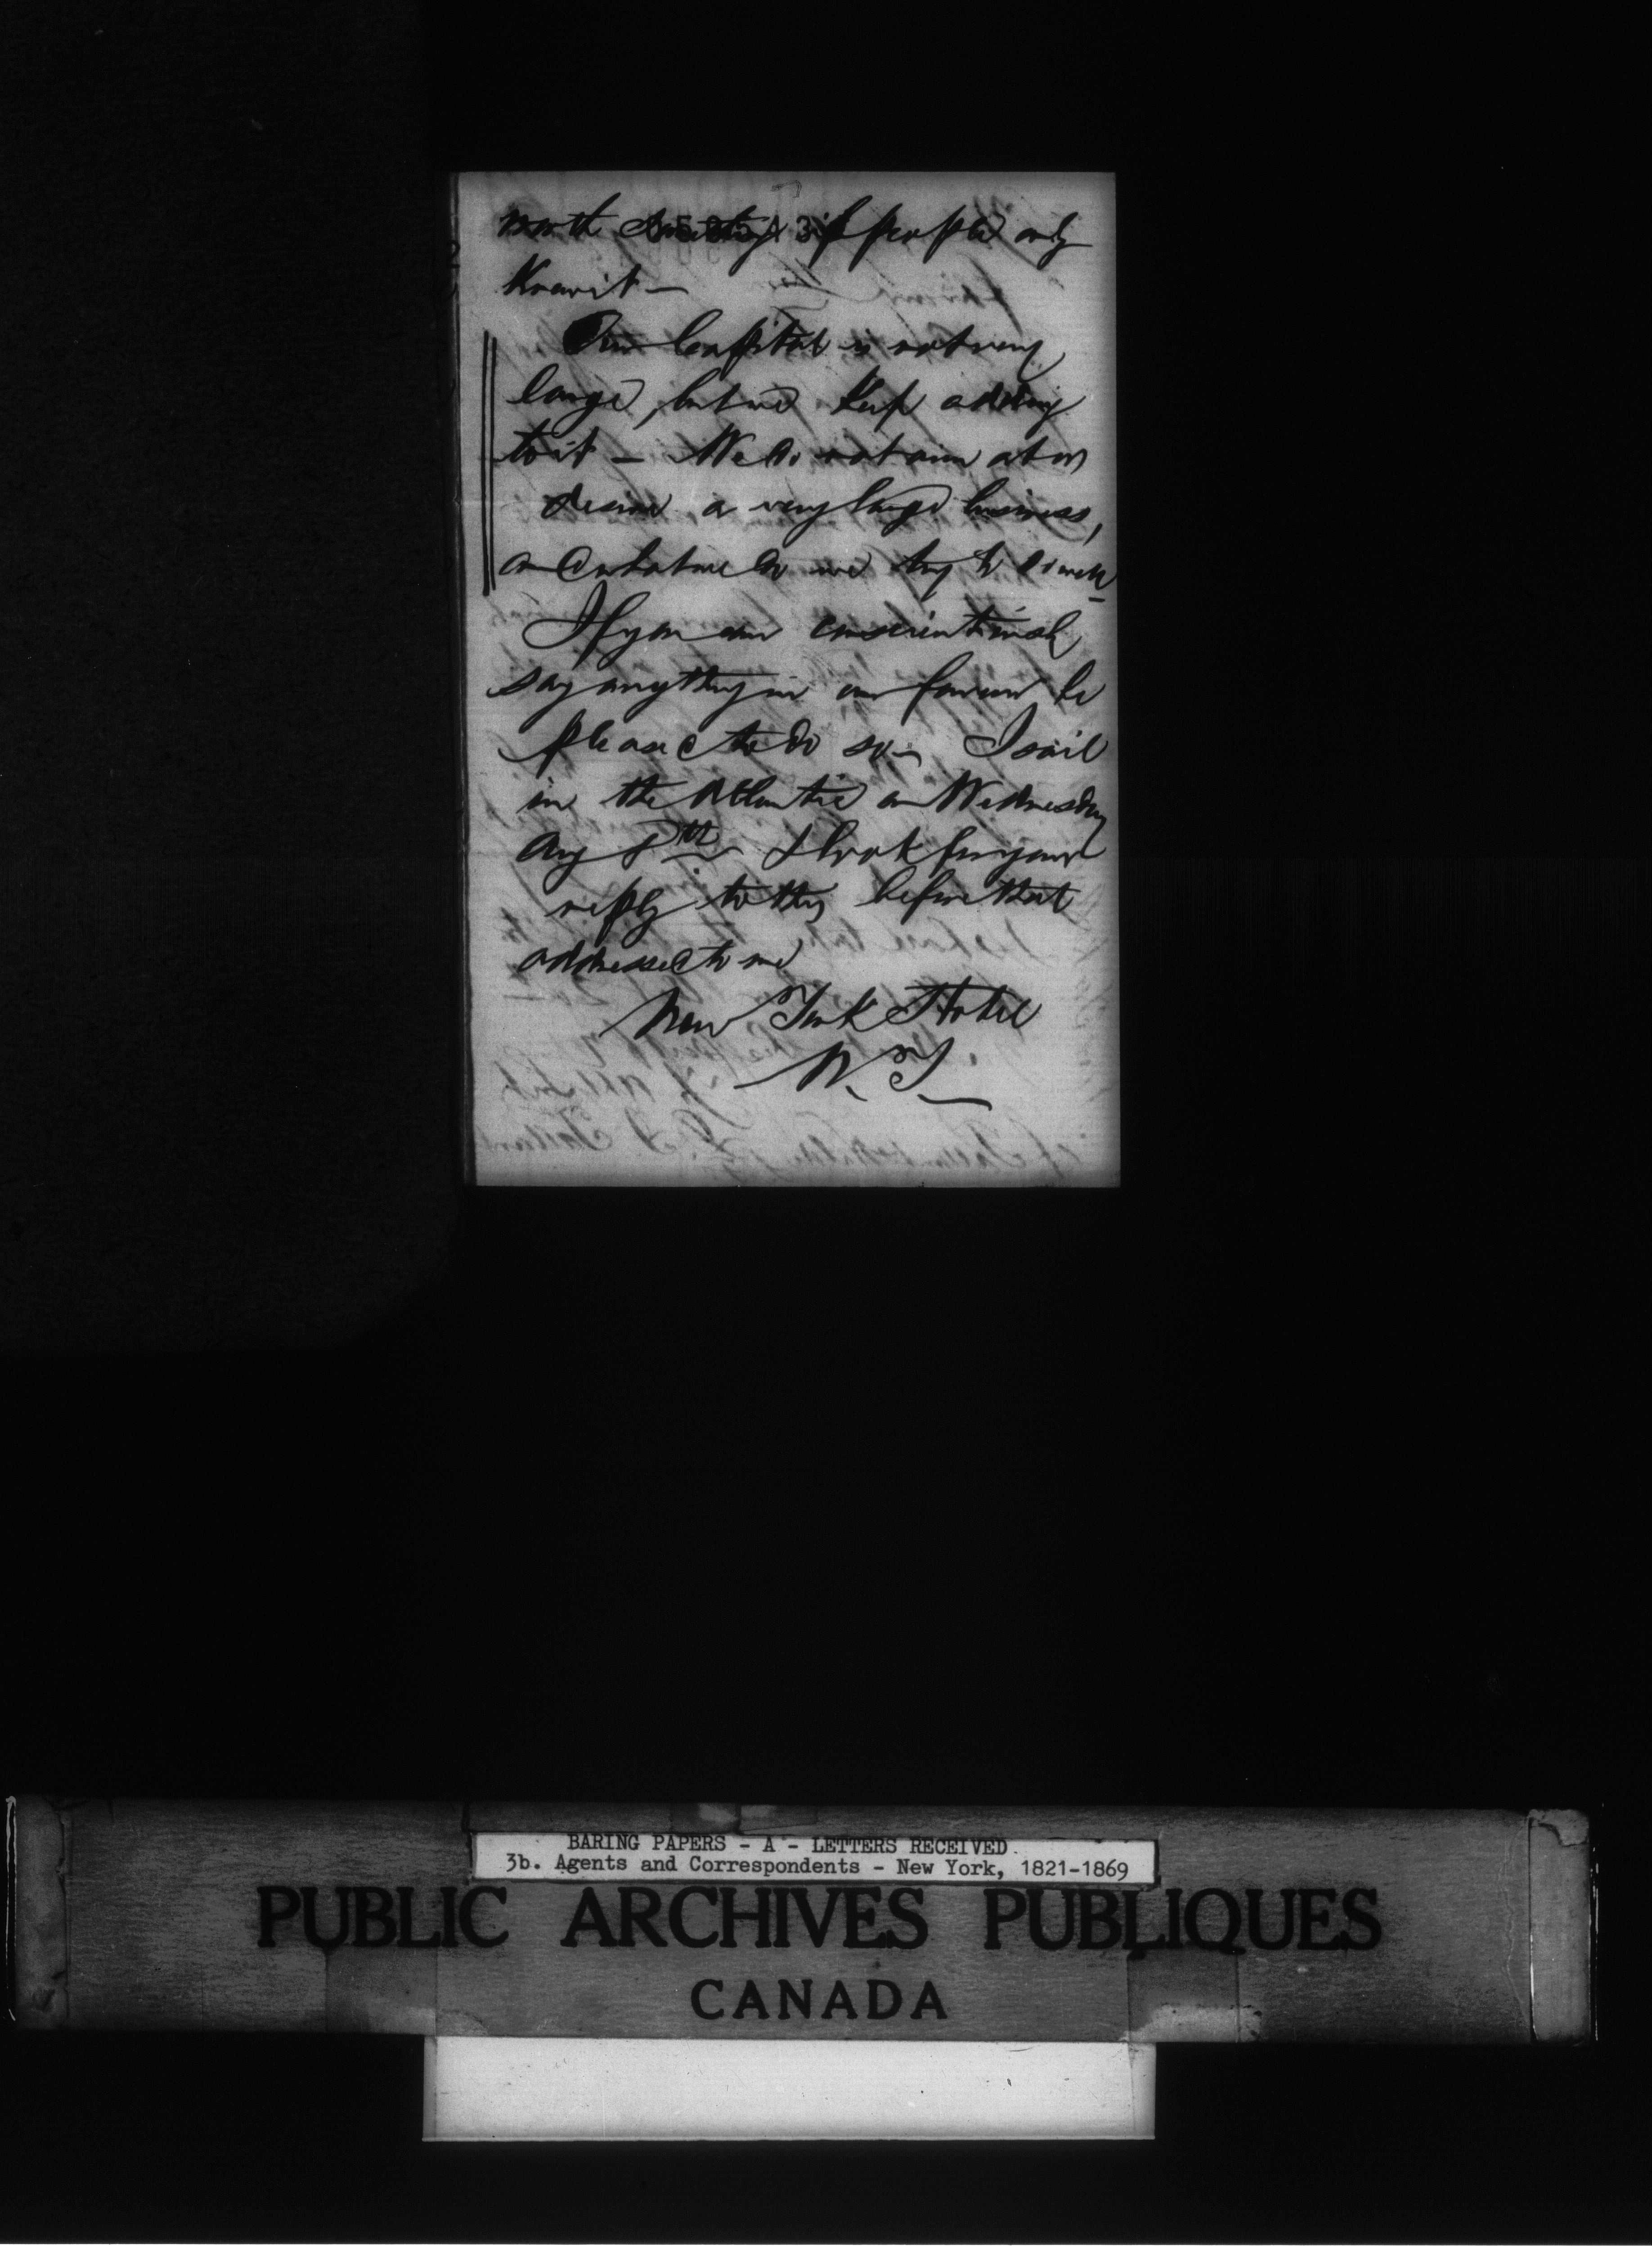 worth something if people only
Know it —
Our Capital is not very
large, but we keep adding
to it — We do not aim at or
desire a very large business,
and what we do we try to do well —
If you can conscientiously
say anything in our favour be
pleased to do so — I sail
in the Atlantic on Wednesday
Aug 8th & look for your
reply to this before that
addressed to me
New York Hotel
N. Y.
BARING PAPERS - A - LETTERS RECEIVED
3b. Agents and Correspondents - New York, 1821-1869
PUBLIC ARCHIVES PUBLIQUES
CANADA